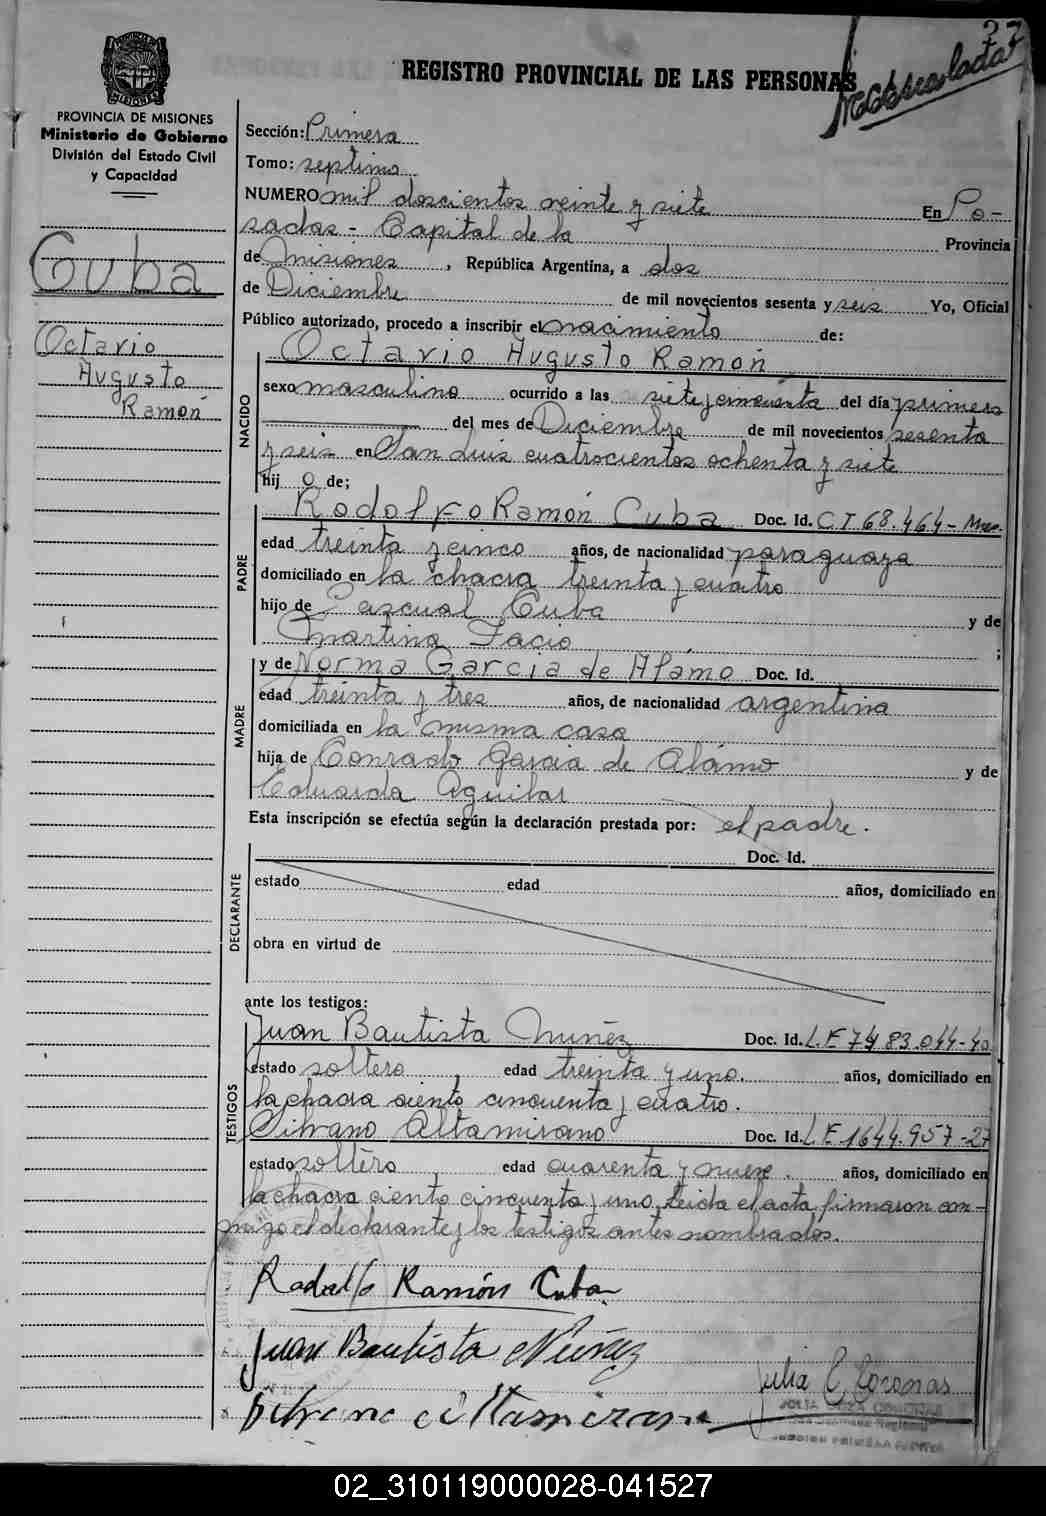 27
REGISTRO PROVINCIAL DE LAS PERSONAS
PROVINCIA DE MISIONES
Ministerio de Gobierno
División del Estado Civil
y Capacidad
Cuba
Octavio
Augusto
Ramón
Sección: Primera
Tomo: septimo
NUMERO mil doscientos veinte y siete En Po-
sadas - Capital de la Provincia
de Misiones, República Argentina, a dos
de Diciembre de mil novecientos sesenta y seis Yo, Oficial
Público autorizado, procedo a inscribir el nacimiento de:
Octavio Augusto Ramón
NACIDO
sexo masculino ocurrido a las siete y cincuenta del día primero
del mes de Diciembre de mil novecientos sesenta
y seis en San Luis cuatrocientos ochenta y siete
hij o de;
PADRE
Rodolfo Ramón Cuba Doc. Id. C I 68.464 - Mnes.
edad treinta y cinco años, de nacionalidad paraguaya
domiciliado en la chacra treinta y cuatro
hijo de Pascual Cuba y de
Martina Facio ;
MADRE
y de Norma García de Alamo Doc. Id.
edad treinta y tres años, de nacionalidad argentina
domiciliada en la misma casa
hija de Conrado Garcia de Alámo y de
Eduarda Aguilar
Esta inscripción se efectúa según la declaración prestada por: el padre.
DECLARANTE
Doc. Id.
estado edad años, domiciliado en
obra en virtud de
ante los testigos:
TESTIGOS
Juan Bautista Nuñez Doc. Id. L.E 7483.044-40
estado soltero, edad treinta y uno. años, domiciliado en
la chacra ciento cincuenta y cuatro.
Silvano Altamirano Doc. Id. L E 1644.957-27
estado soltero, edad cuarenta y nueve. años, domiciliado en
la chacra ciento cincuenta y uno. Leida el acta, firmaron con-
migo el declarante y los testigos antes nombrados.
Rodolfo Ramón Cuba
Juan Bautista Núñez
Silvano Altamirano
Julia E Coronas
02_310119000028-041527